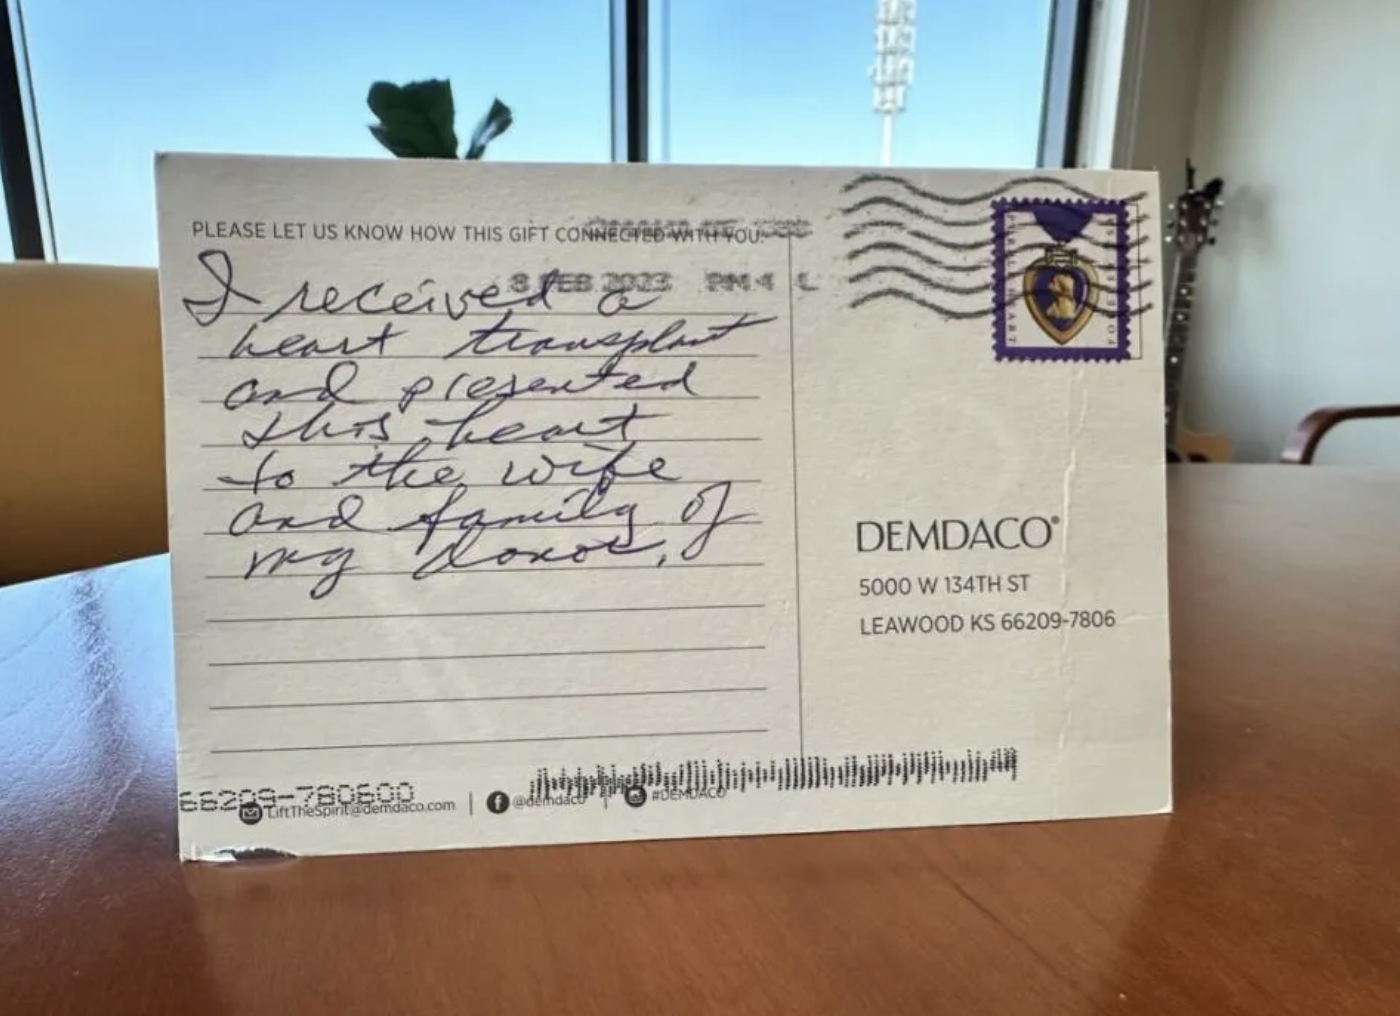 PLEASE LET US KNOW HOW THIS GIFT CONNECTED WITH YOU.
8 FEB 2023 PM 4 L
I received a
heart transplant
and presented
this heart
to the wife
and family of
my donor.
PURPLE HEART
FOREVER
DEMDACO®
5000 W 134TH ST
LEAWOOD KS 66209-7806
66209-780600
LiftTheSpirit@demdaco.com | @demdaco | #DEMDACO